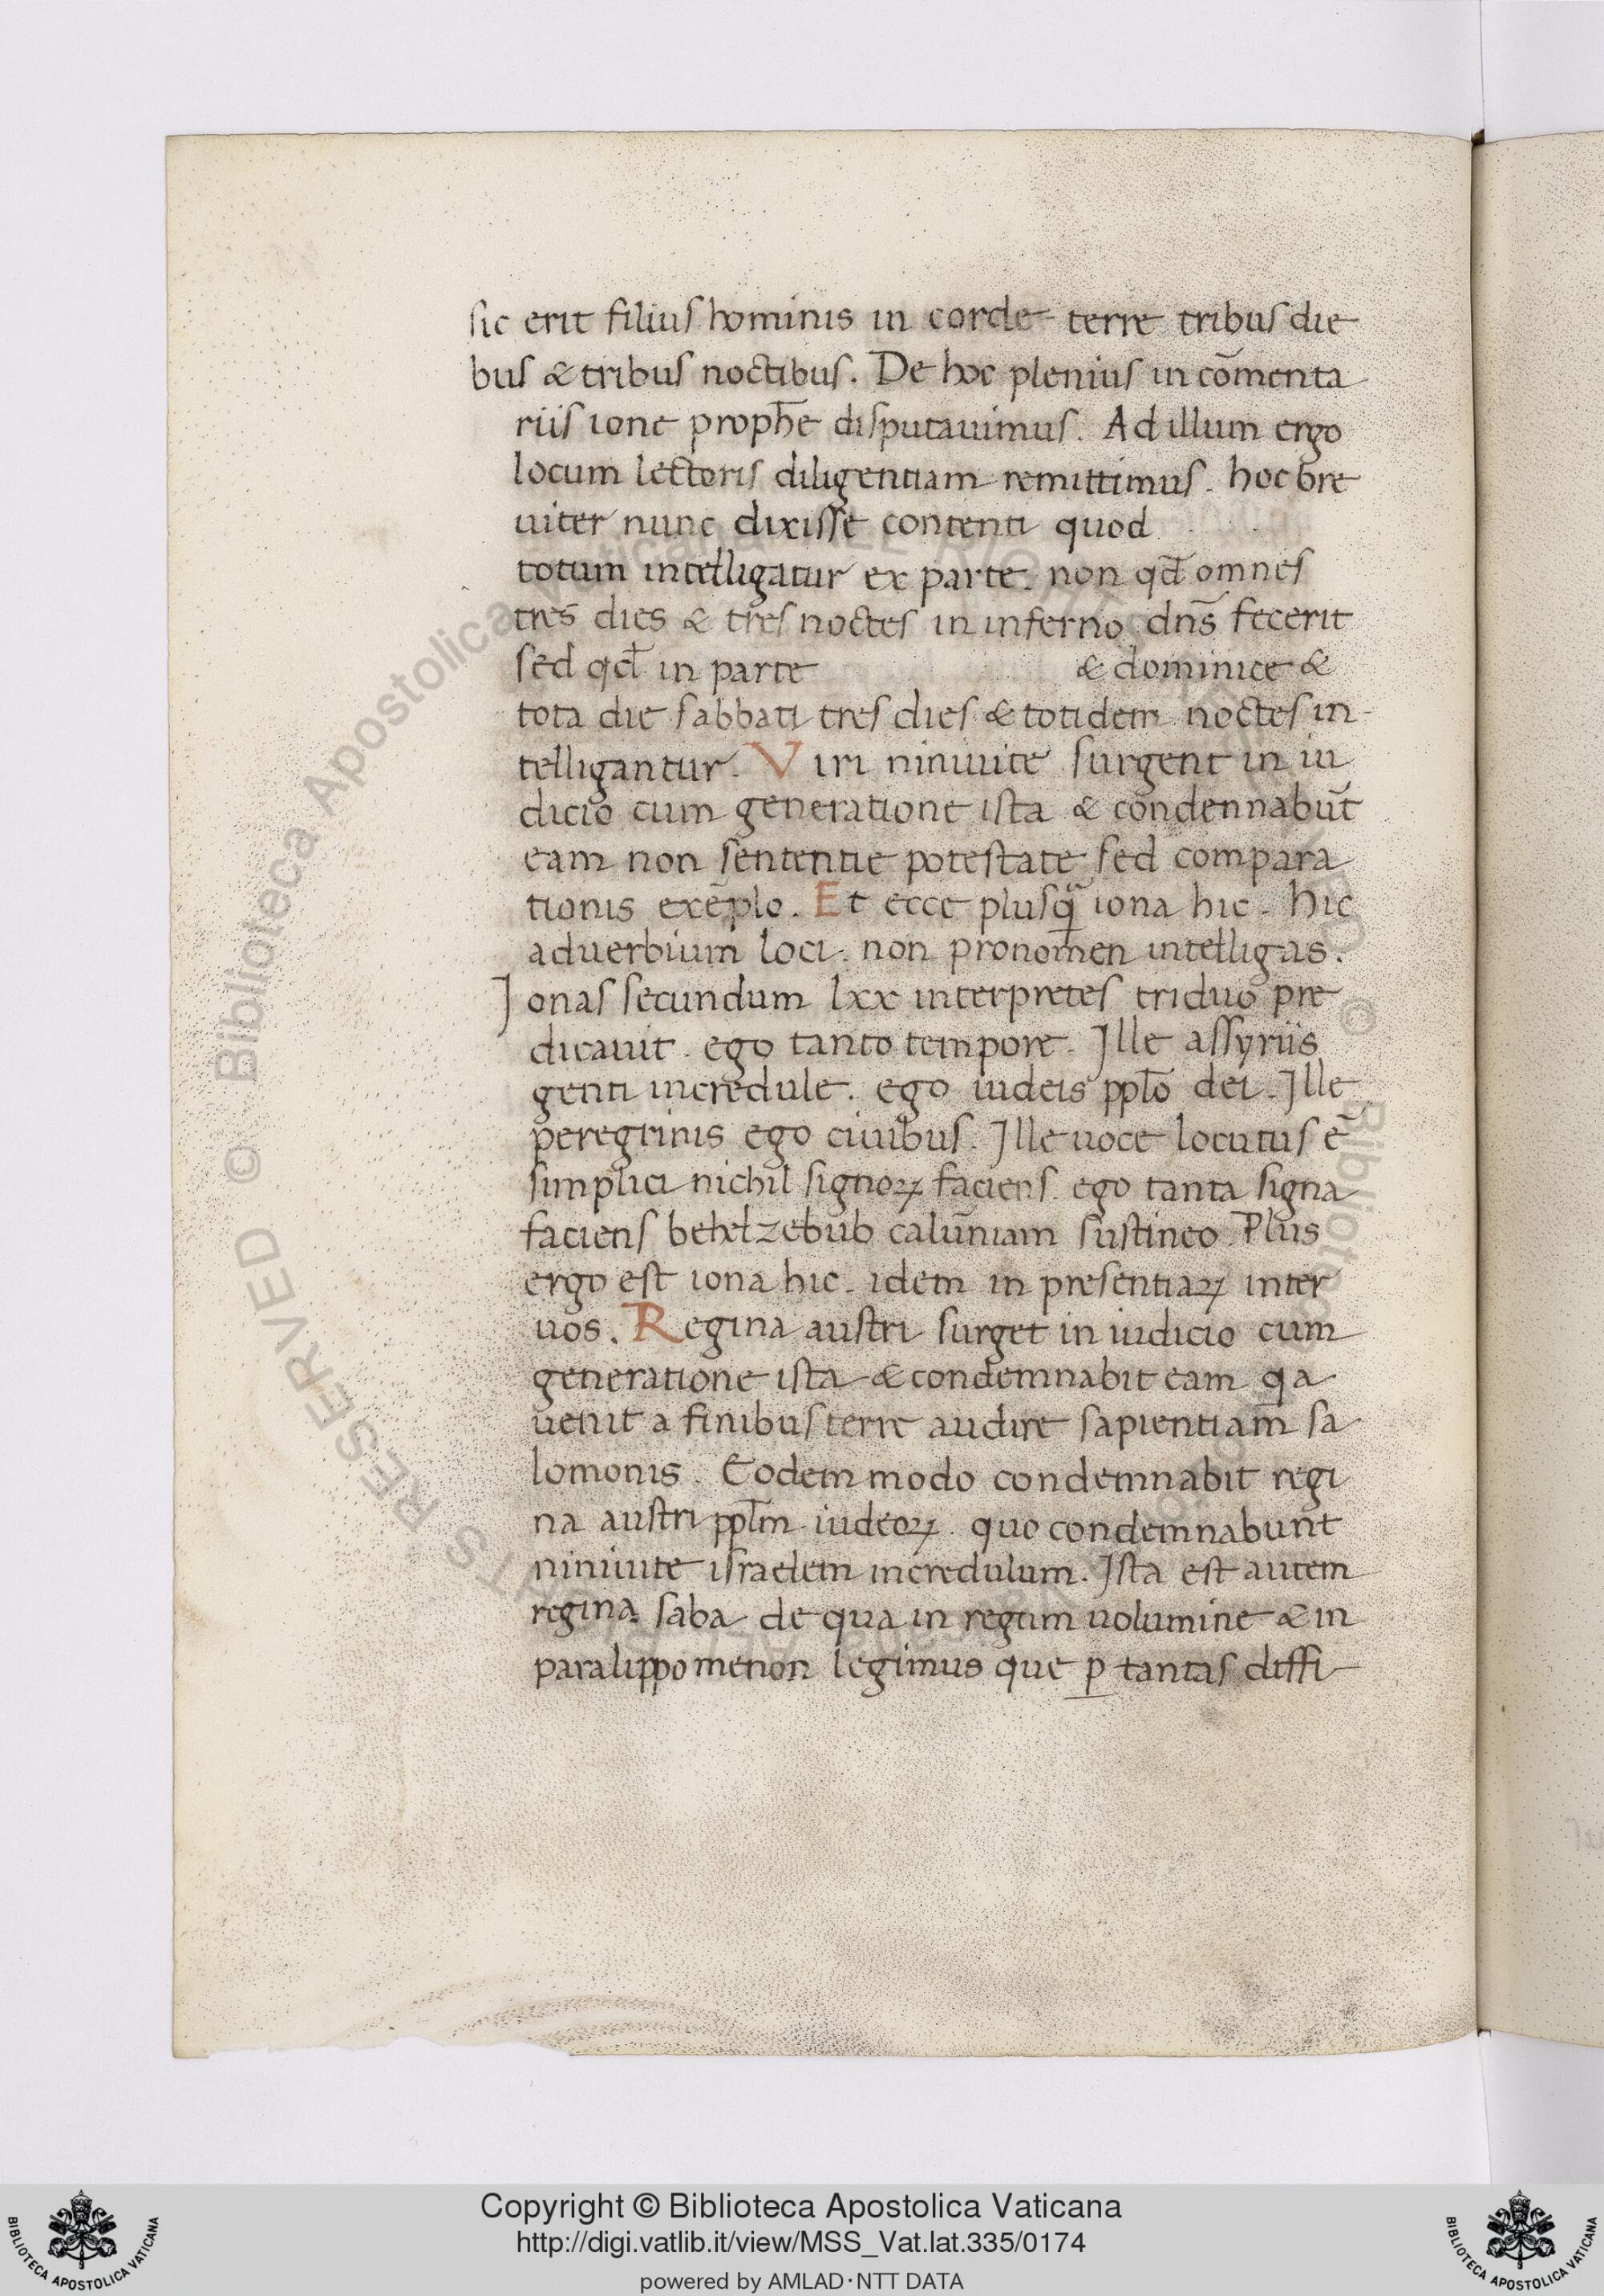 sic erit filius hominis in corde terre tribus die
bus & tribus noctibus. De hoc plenius in cōmenta
riis ione proph̄e disputauimus. Ad illum ergo
locum lectoris diligentiam remittimus. hoc bre
uiter nunc dixisse contenti quod
totum intelligatur ex parte. non qđ omnes
tres dies & tres noctes in inferno dn̄s fecerit
sed qđ in parte & dominice &
tota die sabbati tres dies & totidem noctes in-
telligantur. Viri niniuite surgent in iu
dicio cum generatione ista & condennabūt
eam non sententie potestate sed compara
tionis exēplo. Et ecce plusq̄ iona hic. hic
aduerbium loci. non pronomen intelligas.
Jonas secundum lxx interpretes triduo pre
dicauit. ego tanto tempore. Jlle assyriis
genti incredule. ego iudeis pplō dei. Jlle
peregrinis ego ciuibus. Jlle uoce locutus ē
simplici nichil signoꝝ faciens. ego tanta signa
faciens behelzebub calūniam sustineo. Plus
ergo est iona hic. idem in presentiaꝝ inter
uos. Regina austri surget in iudicio cum
generatione ista & condemnabit eam qa
uenit a finibus terre audire sapientiam sa
lomonis. Eodem modo condemnabit regi
na austri pplm̄ iudeoꝝ. quo condemnabunt
niniuite israelem incredulum. Jsta est autem
regina saba de qua in regum uolumine & in
paralippomenon legimus que ꝑ tantas diffi-
RESERVED © Biblioteca Apostolica Vaticana
Copyright © Biblioteca Apostolica Vaticana
http://digi.vatlib.it/view/MSS_Vat.lat.335/0174
powered by AMLAD·NTT DATA
BIBLIOTECA APOSTOLICA VATICANA
BIBLIOTECA APOSTOLICA VATICANA